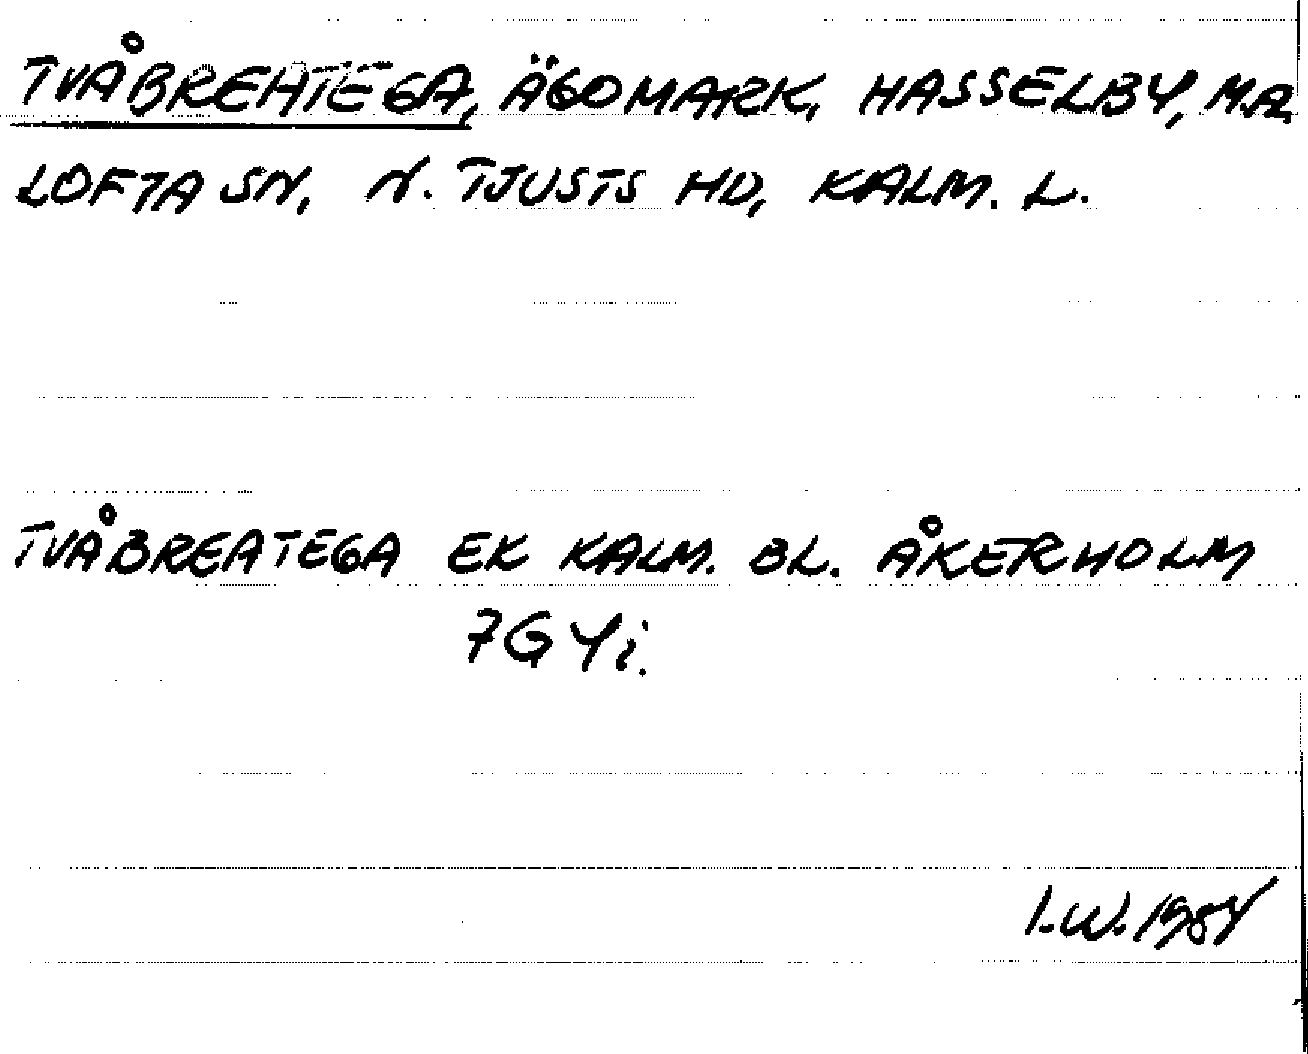 TVÅBREATEGA, ÄGOMARK, HASSELBY, M.FL.
LOFTA SN, N. TJUSTS HD, KALM. L.
TVÅBREATEGA EK KALM. BL. ÅKERHOLM
7G Yi.
I.W. 1984